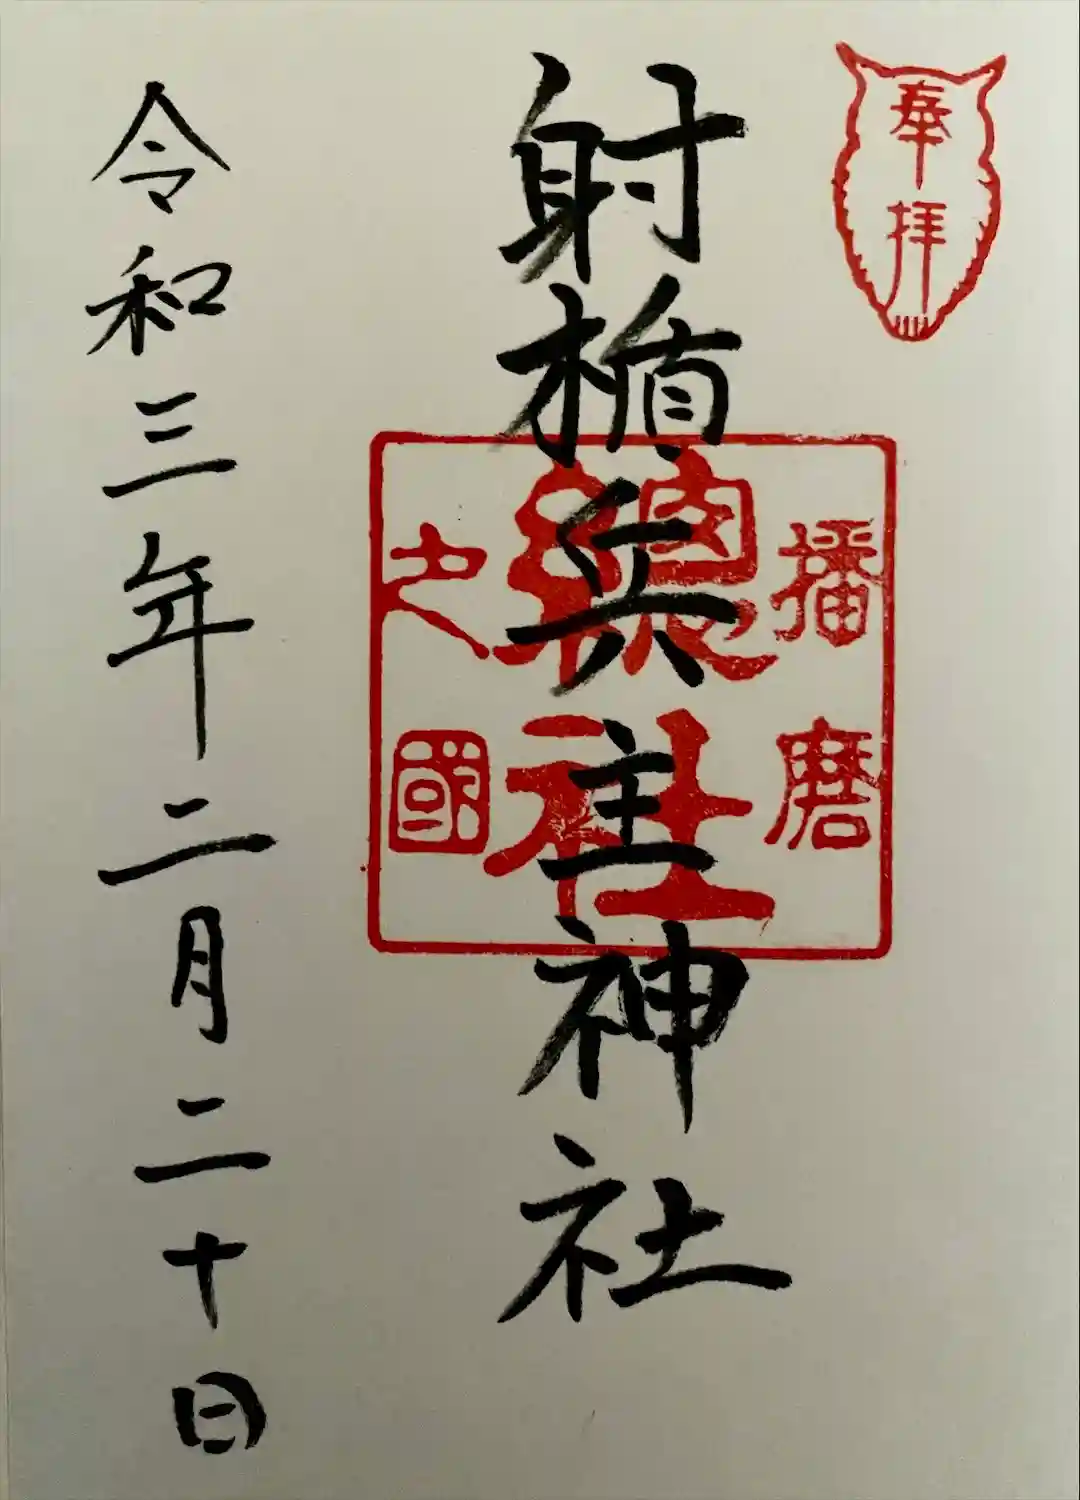 奉拝
射楯兵主神社
播磨
総社
之國
令和三年二月二十日